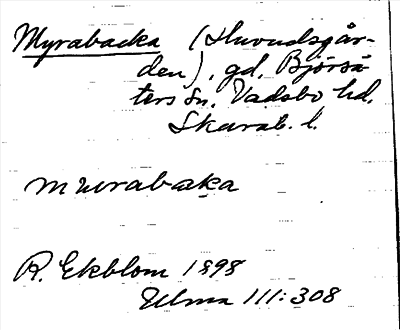 Myrabacka (Huvudsgår-
den), gd, Björsä-
ters sn, Vadsbo hd,
Skarab. l.
murabaka
R. Ekblom 1898
Ulma 111:308